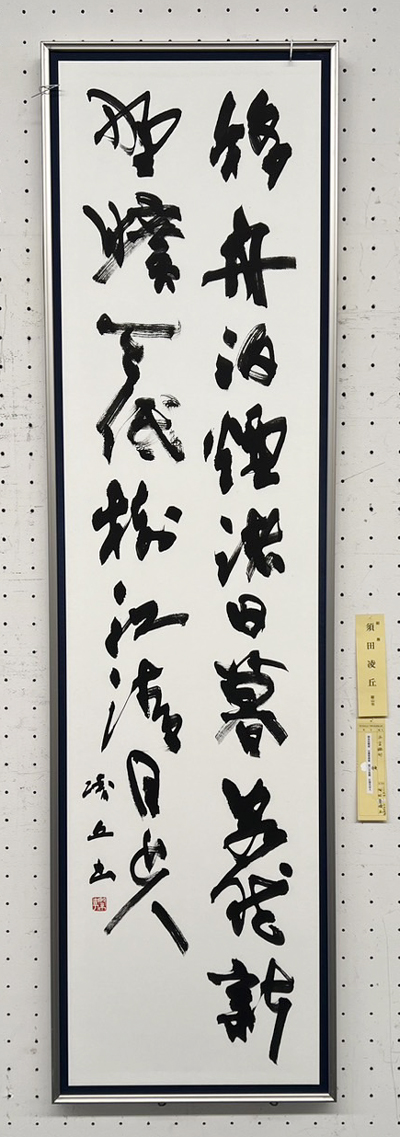 移舟泊煙渚日暮客愁新
野曠天低樹江清月近人
凌丘書
須田凌丘